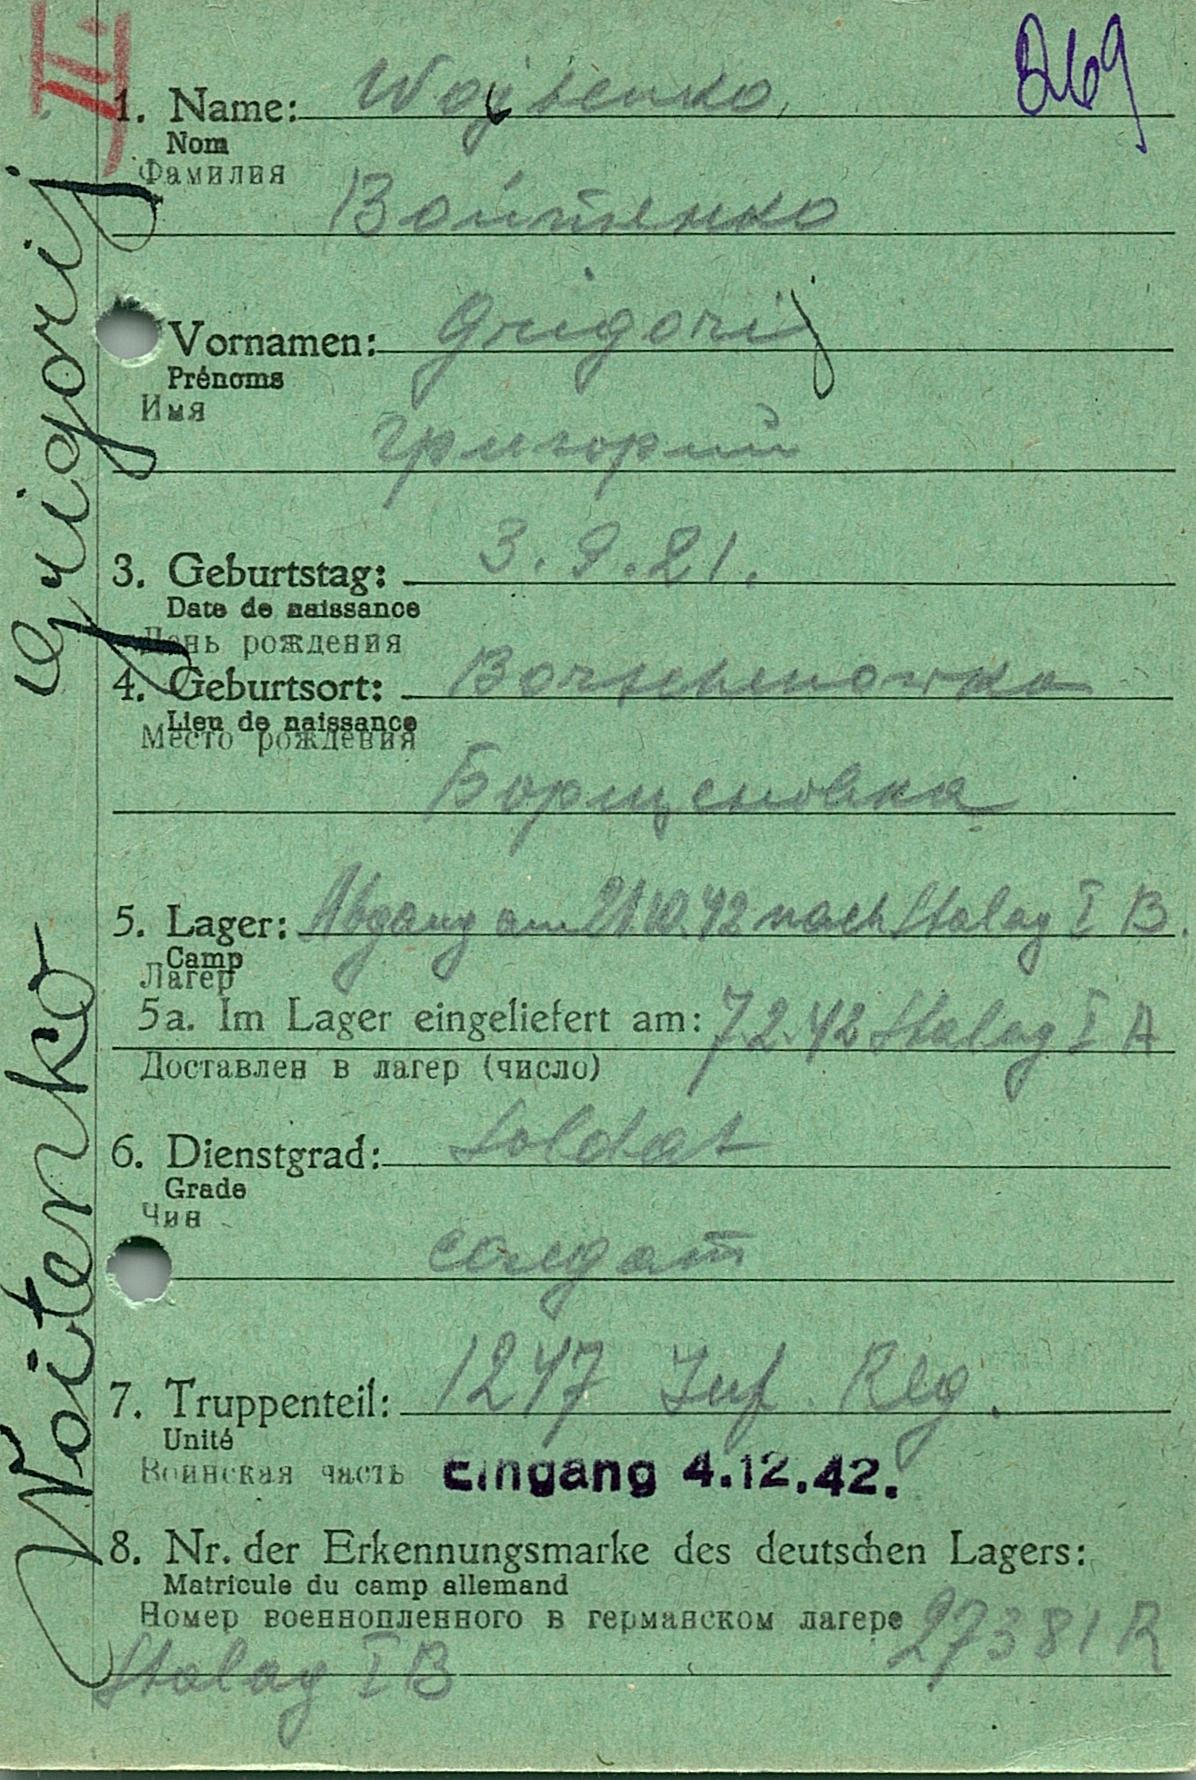 II.
269
1. Name: Wojtenko
Nom
Фамилия
Войтенко
Vornamen: Grigorij
Prénoms
Имя
Григорий
3. Geburtstag: 3.9.21.
Date de naissance
День рождения
4. Geburtsort: Borschenowka
Lieu de naissance
Место рождения
Борщеновка
5. Lager: Abgang am 21.10.42 nach Stalag I B.
Camp
Лагер
5a. Im Lager eingeliefert am: 7.2.42 Stalag I A
Доставлен в лагер (число)
6. Dienstgrad: Soldat
Grade
Чин
солдат
7. Truppenteil: 1247 Inf. Reg.
Unité
Воинская часть
Eingang 4.12.42.
8. Nr. der Erkennungsmarke des deutschen Lagers:
Matricule du camp allemand
Номер военнопленного в германском лагере 27381 R
Stalag I B
Woitenko Grigorij